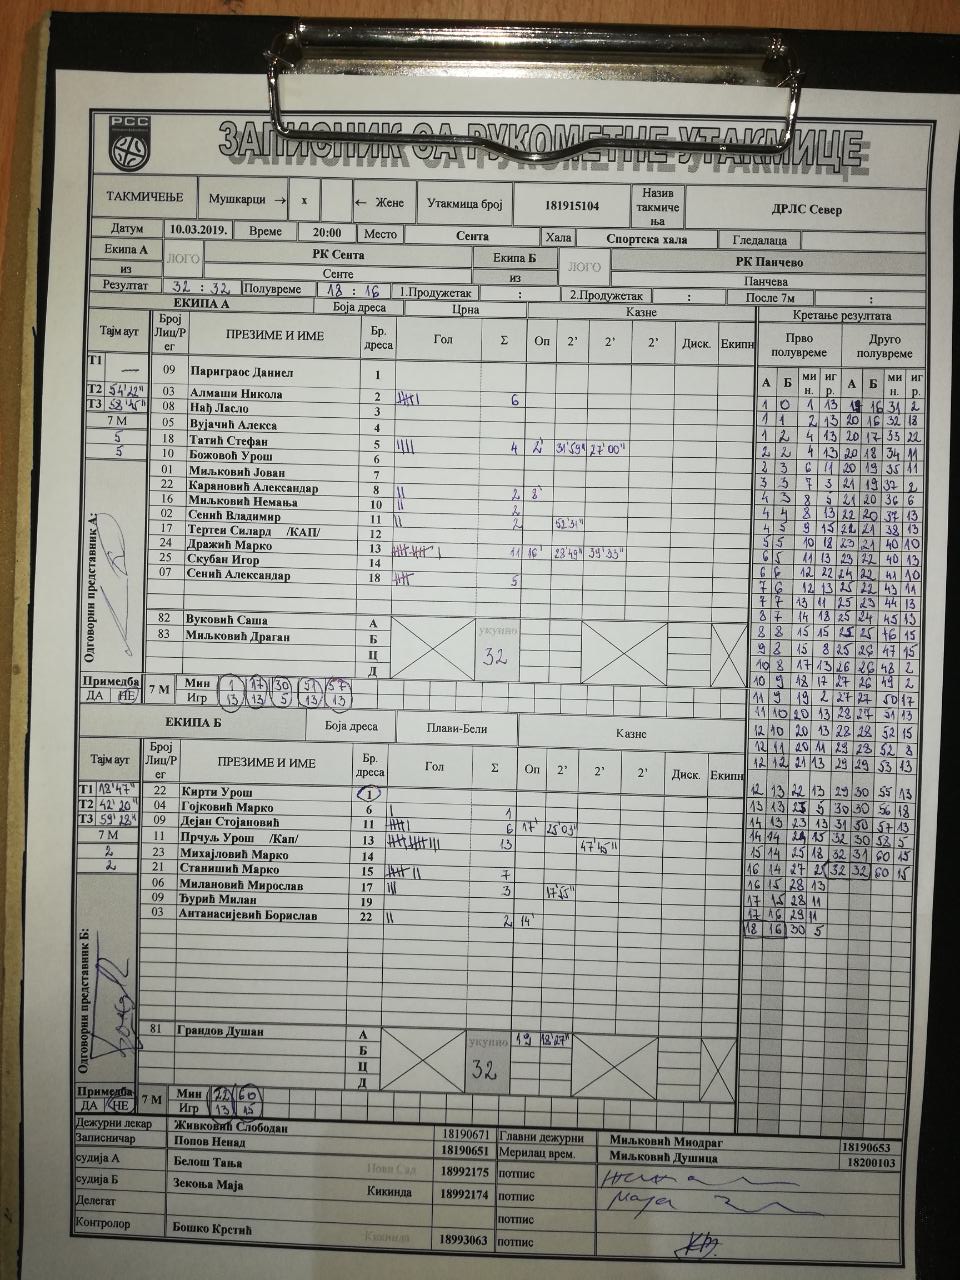 РСС
ЗАПИСНИК СА РУКОМЕТНЕ УТАКМИЦЕ
ТАКМИЧЕЊЕ Мушкарци → x ← Жене Утакмица број 181915104 Назив такмичења ДРЛС Север
Датум 10.03.2019. Време 20:00 Место Сента Хала Спортска хала Гледалаца
Екипа А ЛОГО РК Сента Екипа Б ЛОГО РК Панчево
из Сенте из Панчева
Резултат 32 : 32 Полувреме 18 : 16 1.Продужетак : 2.Продужетак : После 7м :
ЕКИПА А Боја дреса Црна Казне Кретање резултата
Тајм аут Број Лиц/Рег ПРЕЗИМЕ И ИМЕ Бр. дреса Гол Σ Оп 2' 2' 2' Диск. Екипн
Прво полувреме Друго полувреме
А Б мин. игр. А Б мин. игр.
Т1 — 09 Париграос Даниел 1
Т2 54'22" 03 Алмаши Никола 2 6
Т3 58'45" 08 Нађ Ласло 3
7 М 05 Вујачић Алекса 4
5 18 Татић Стефан 5 4 2' 31'59" 27'00"
5 10 Божовоћ Урош 6
01 Миљковић Јован 7
22 Карановић Александар 8 2 8'
16 Миљковић Немања 10 2
02 Сенић Владимир 11 2 52'31"
17 Тертеи Силард /КАП/ 12
24 Дражић Марко 13 11 16' 28'49" 39'33"
25 Скубан Игор 14
07 Сенић Александар 18 5
82 Вуковић Саша А
83 Миљковић Драган Б
Ц
Д
укупно 32
Одговорни представник А:
Примедба ДА НЕ
7 М Мин 1 17 30 51 57
Игр 13 13 5 13 13
ЕКИПА Б Боја дреса Плави-Бели Казне
Тајм аут Број Лиц/Рег ПРЕЗИМЕ И ИМЕ Бр. дреса Гол Σ Оп 2' 2' 2' Диск. Екипн
Т1 18'47" 22 Кирти Урош 1
Т2 42'20" 04 Гојковић Марко 6 1
Т3 59'28" 09 Дејан Стојановић 11 6 17' 25'03"
7 М 11 Прчуљ Урош /Кап/ 13 13 47'45"
2 23 Михајловић Марко 14
2 21 Станишић Марко 15 7
06 Милановић Мирослав 17 3 17'55"
09 Ђурић Милан 19
03 Антанасијевић Борислав 22 2 14'
81 Грандов Душан А 19 18'27"
Б
Ц
Д
укупно 32
Одговорни представник Б:
Примедба ДА НЕ
7 М Мин 22 60
Игр 13 15
1 0 1 13 19 16 31 2
1 1 2 13 20 16 32 18
1 2 4 13 20 17 33 22
2 2 4 13 20 18 34 11
2 3 6 11 20 19 35 11
3 3 7 3 21 19 37 2
4 3 8 5 21 20 36 6
4 4 8 13 22 20 37 13
4 5 9 15 22 21 38 13
5 5 10 18 23 21 40 10
6 5 11 13 23 22 40 13
6 6 12 22 24 22 41 10
7 6 12 13 25 22 43 11
7 7 13 11 25 23 44 13
8 7 14 18 25 24 45 13
8 8 15 15 25 25 46 15
9 8 15 8 25 26 47 15
10 8 17 13 26 26 48 2
10 9 18 17 27 26 49 2
11 9 19 2 27 27 50 17
11 10 20 13 28 27 51 13
12 10 20 13 28 28 52 15
12 11 20 11 29 28 52 8
12 12 21 13 29 29 53 13
12 13 22 13 29 30 55 13
13 13 23 5 30 30 56 18
14 13 23 13 31 30 57 13
14 14 24 15 32 30 58 5
15 14 25 18 32 31 60 15
16 14 27 25 32 32 60 15
16 15 28 13
17 15 28 11
17 16 29 11
18 16 30 5
Дежурни лекар Живковић Слободан 18190671 Главни дежурни Миљковић Миодраг 18190653
Записничар Попов Ненад 18190651 Мерилац врем. Миљковић Душица 18200103
судија А Белош Тања Нови Сад 18992175 потпис
судија Б Зекоња Маја Кикинда 18992174 потпис Маја
Делегат потпис
Контролор Бошко Крстић Кикинда 18993063 потпис